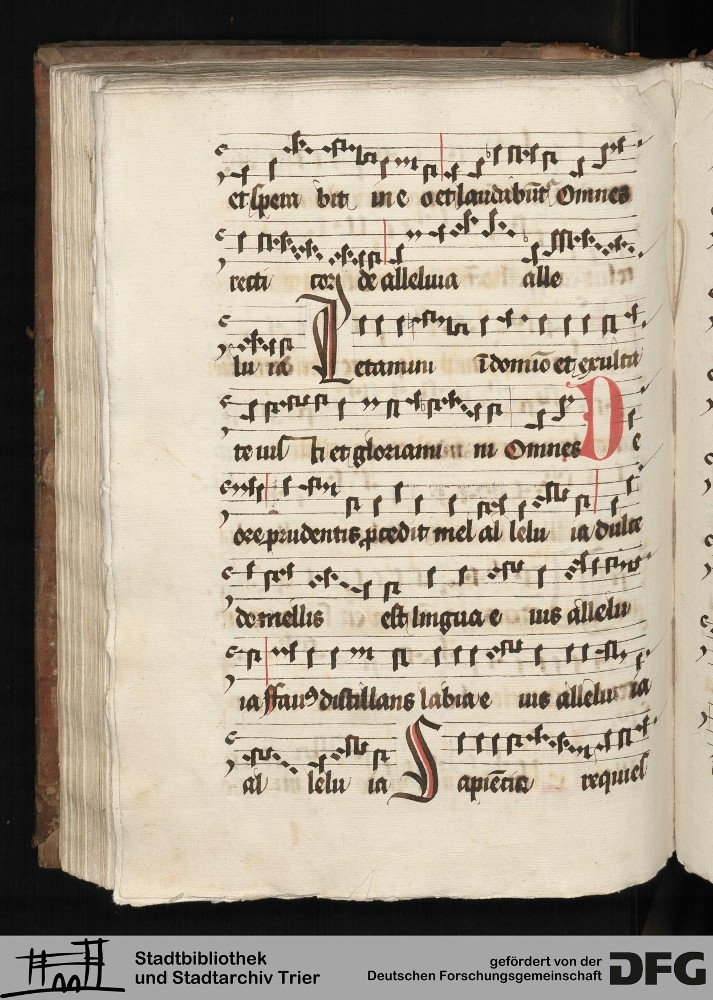 et spera bit in e o et laudabūt Omnes
recti cor de alleluia alle
lu ia Letamini ī domino et exulta
te ius ti et gloriami ni Omnes De
ore prudentis ꝓcedit mel al lelu ia dulce
do mellis est lingua e ius allelu
ia ffauꝰ distillans labia e ius allelu ia
al lelu ia Sapiēcia requies
Stadtbibliothek
und Stadtarchiv Trier
gefördert von der
Deutschen Forschungsgemeinschaft
DFG